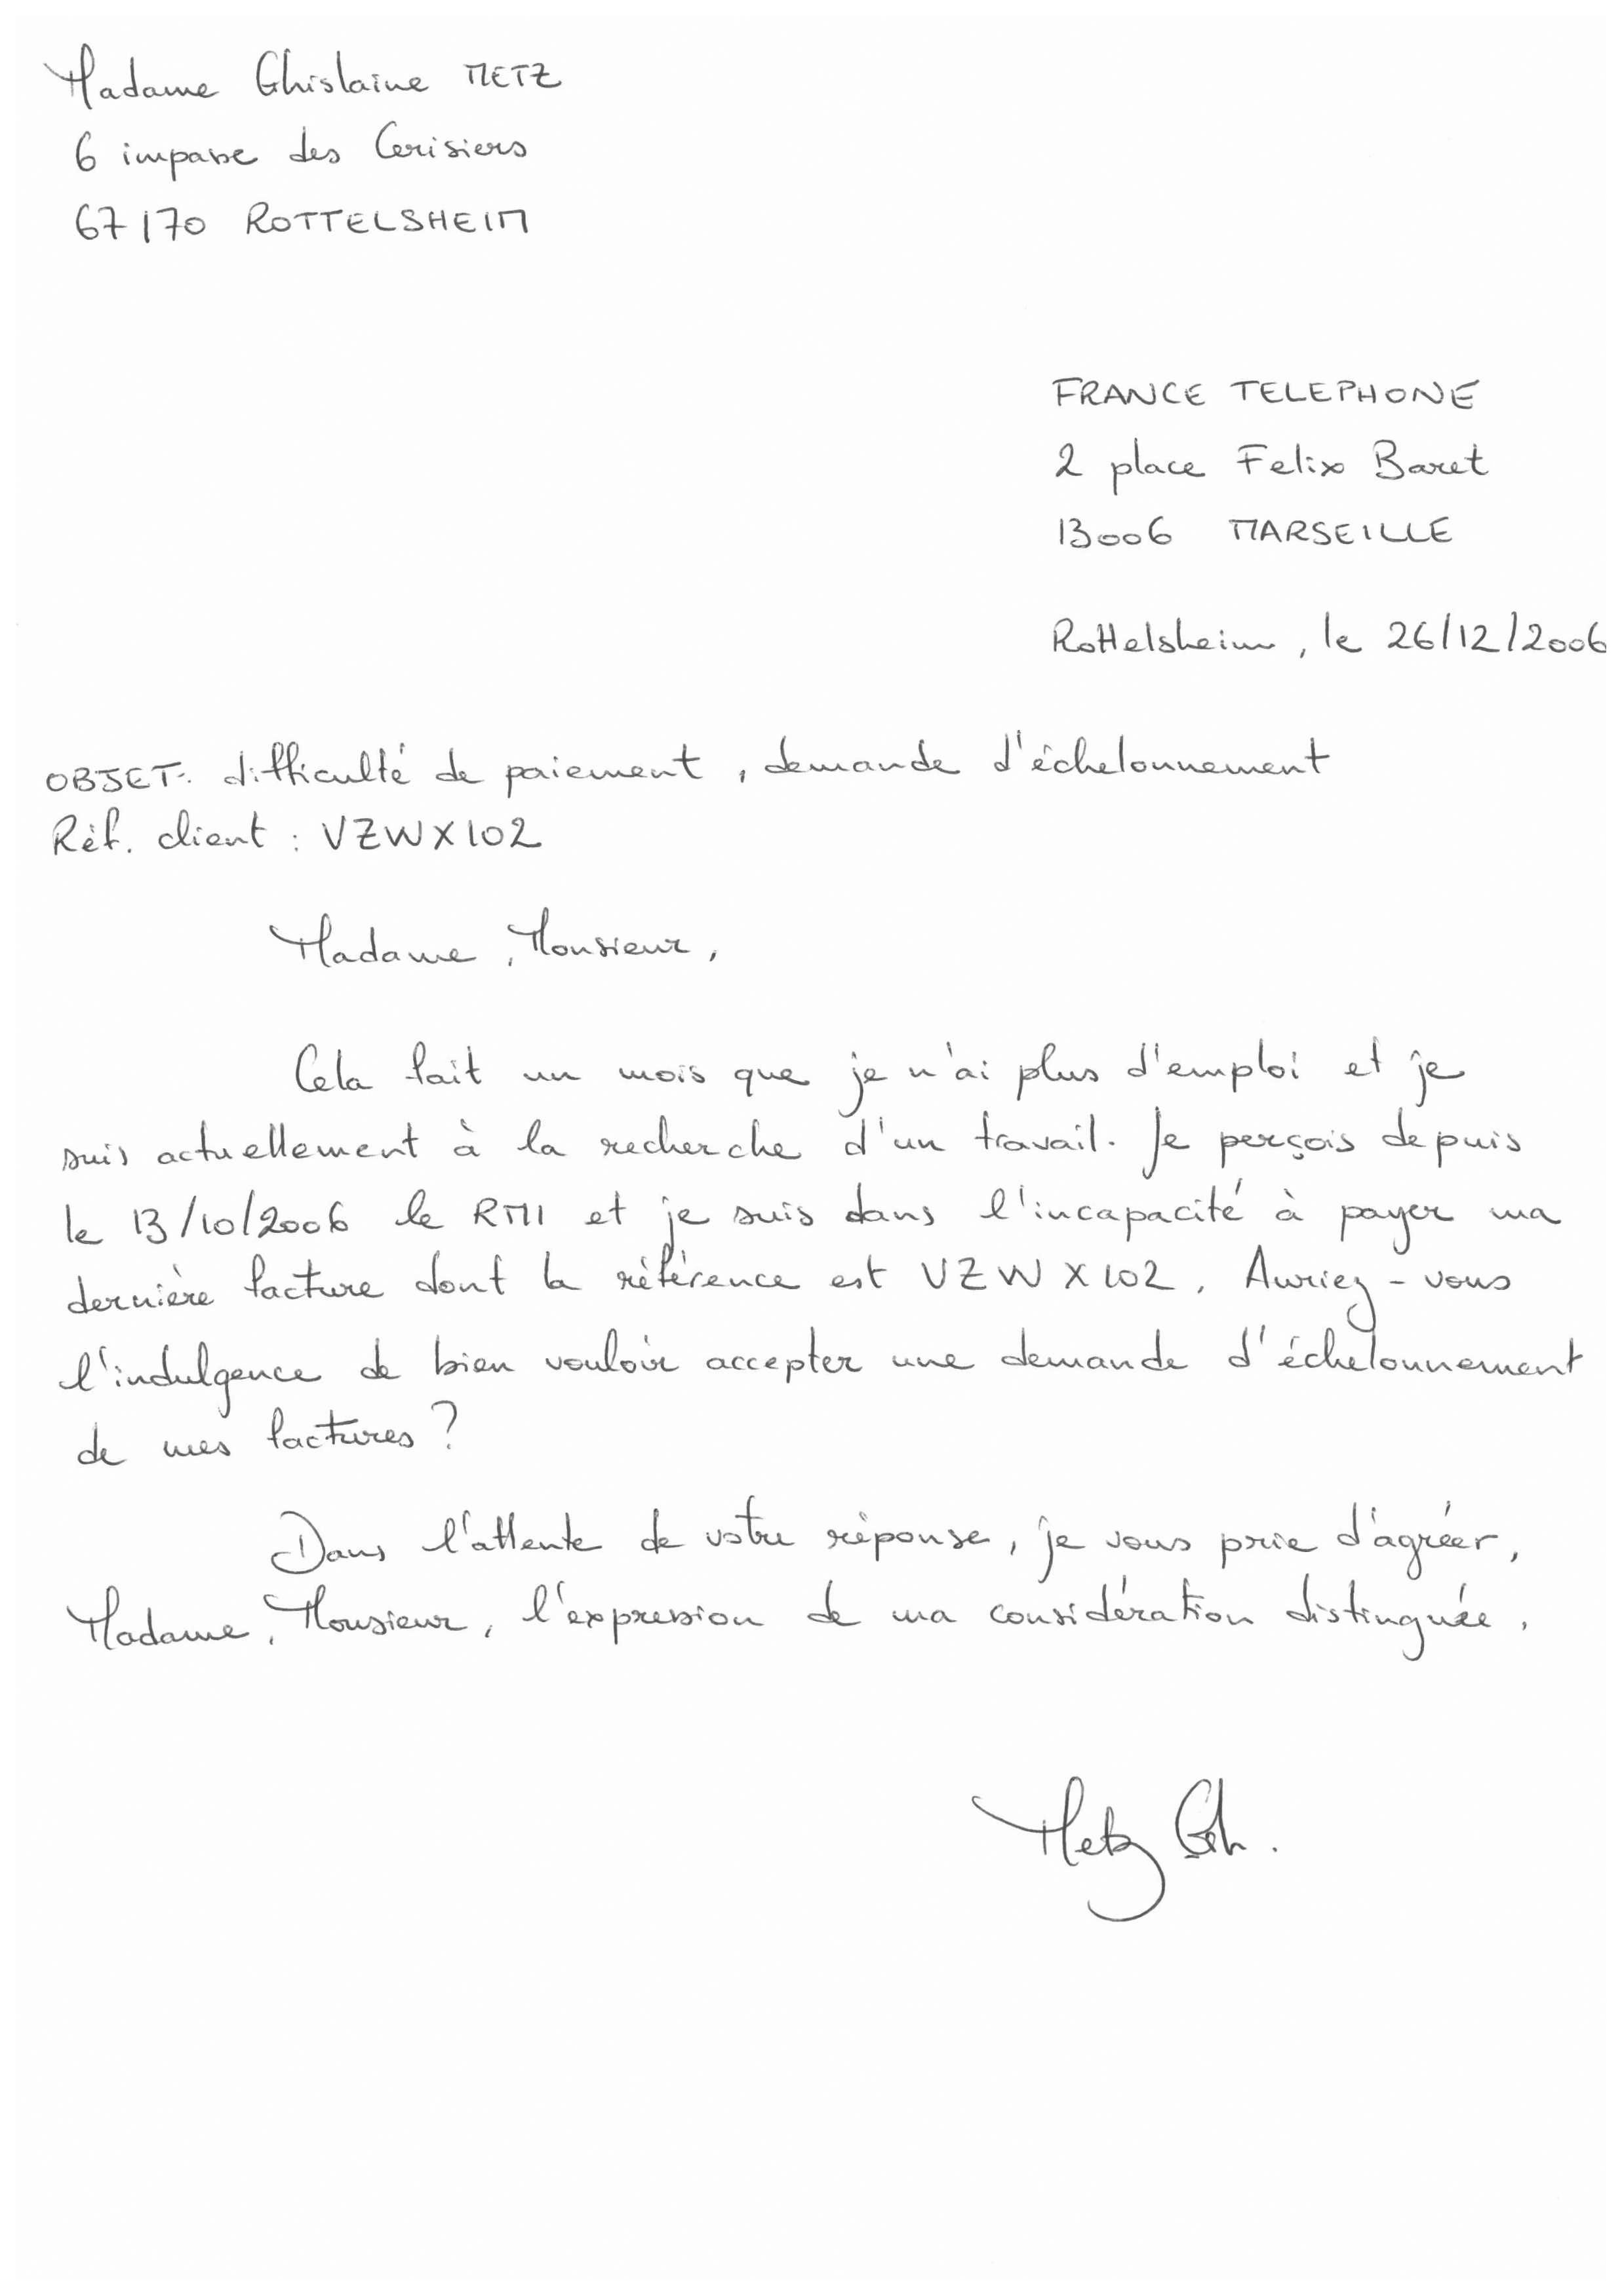 Madame Ghislaine METZ
6 impasse des Cerisiers
67170 ROTTELSHEIM
FRANCE TELEPHONE
2 place Felix Baret
13006 MARSEILLE
Rottelsheim, le 26/12/2006
OBJET: difficulté de paiement, demande d'échelonnement
Réf. client : VZWX102
Madame, Monsieur,
Cela fait un mois que je n'ai plus d'emploi et je
suis actuellement à la recherche d'un travail. Je perçois depuis
le 13/10/2006 le RMI et je suis dans l'incapacité à payer ma
dernière facture dont la référence est VZWX102. Auriez-vous
l'indulgence de bien vouloir accepter une demande d'échelonnement
de mes factures ?
Dans l'attente de votre réponse, je vous prie d'agréer,
Madame, Monsieur, l'expression de ma considération distinguée.
Metz Gh.